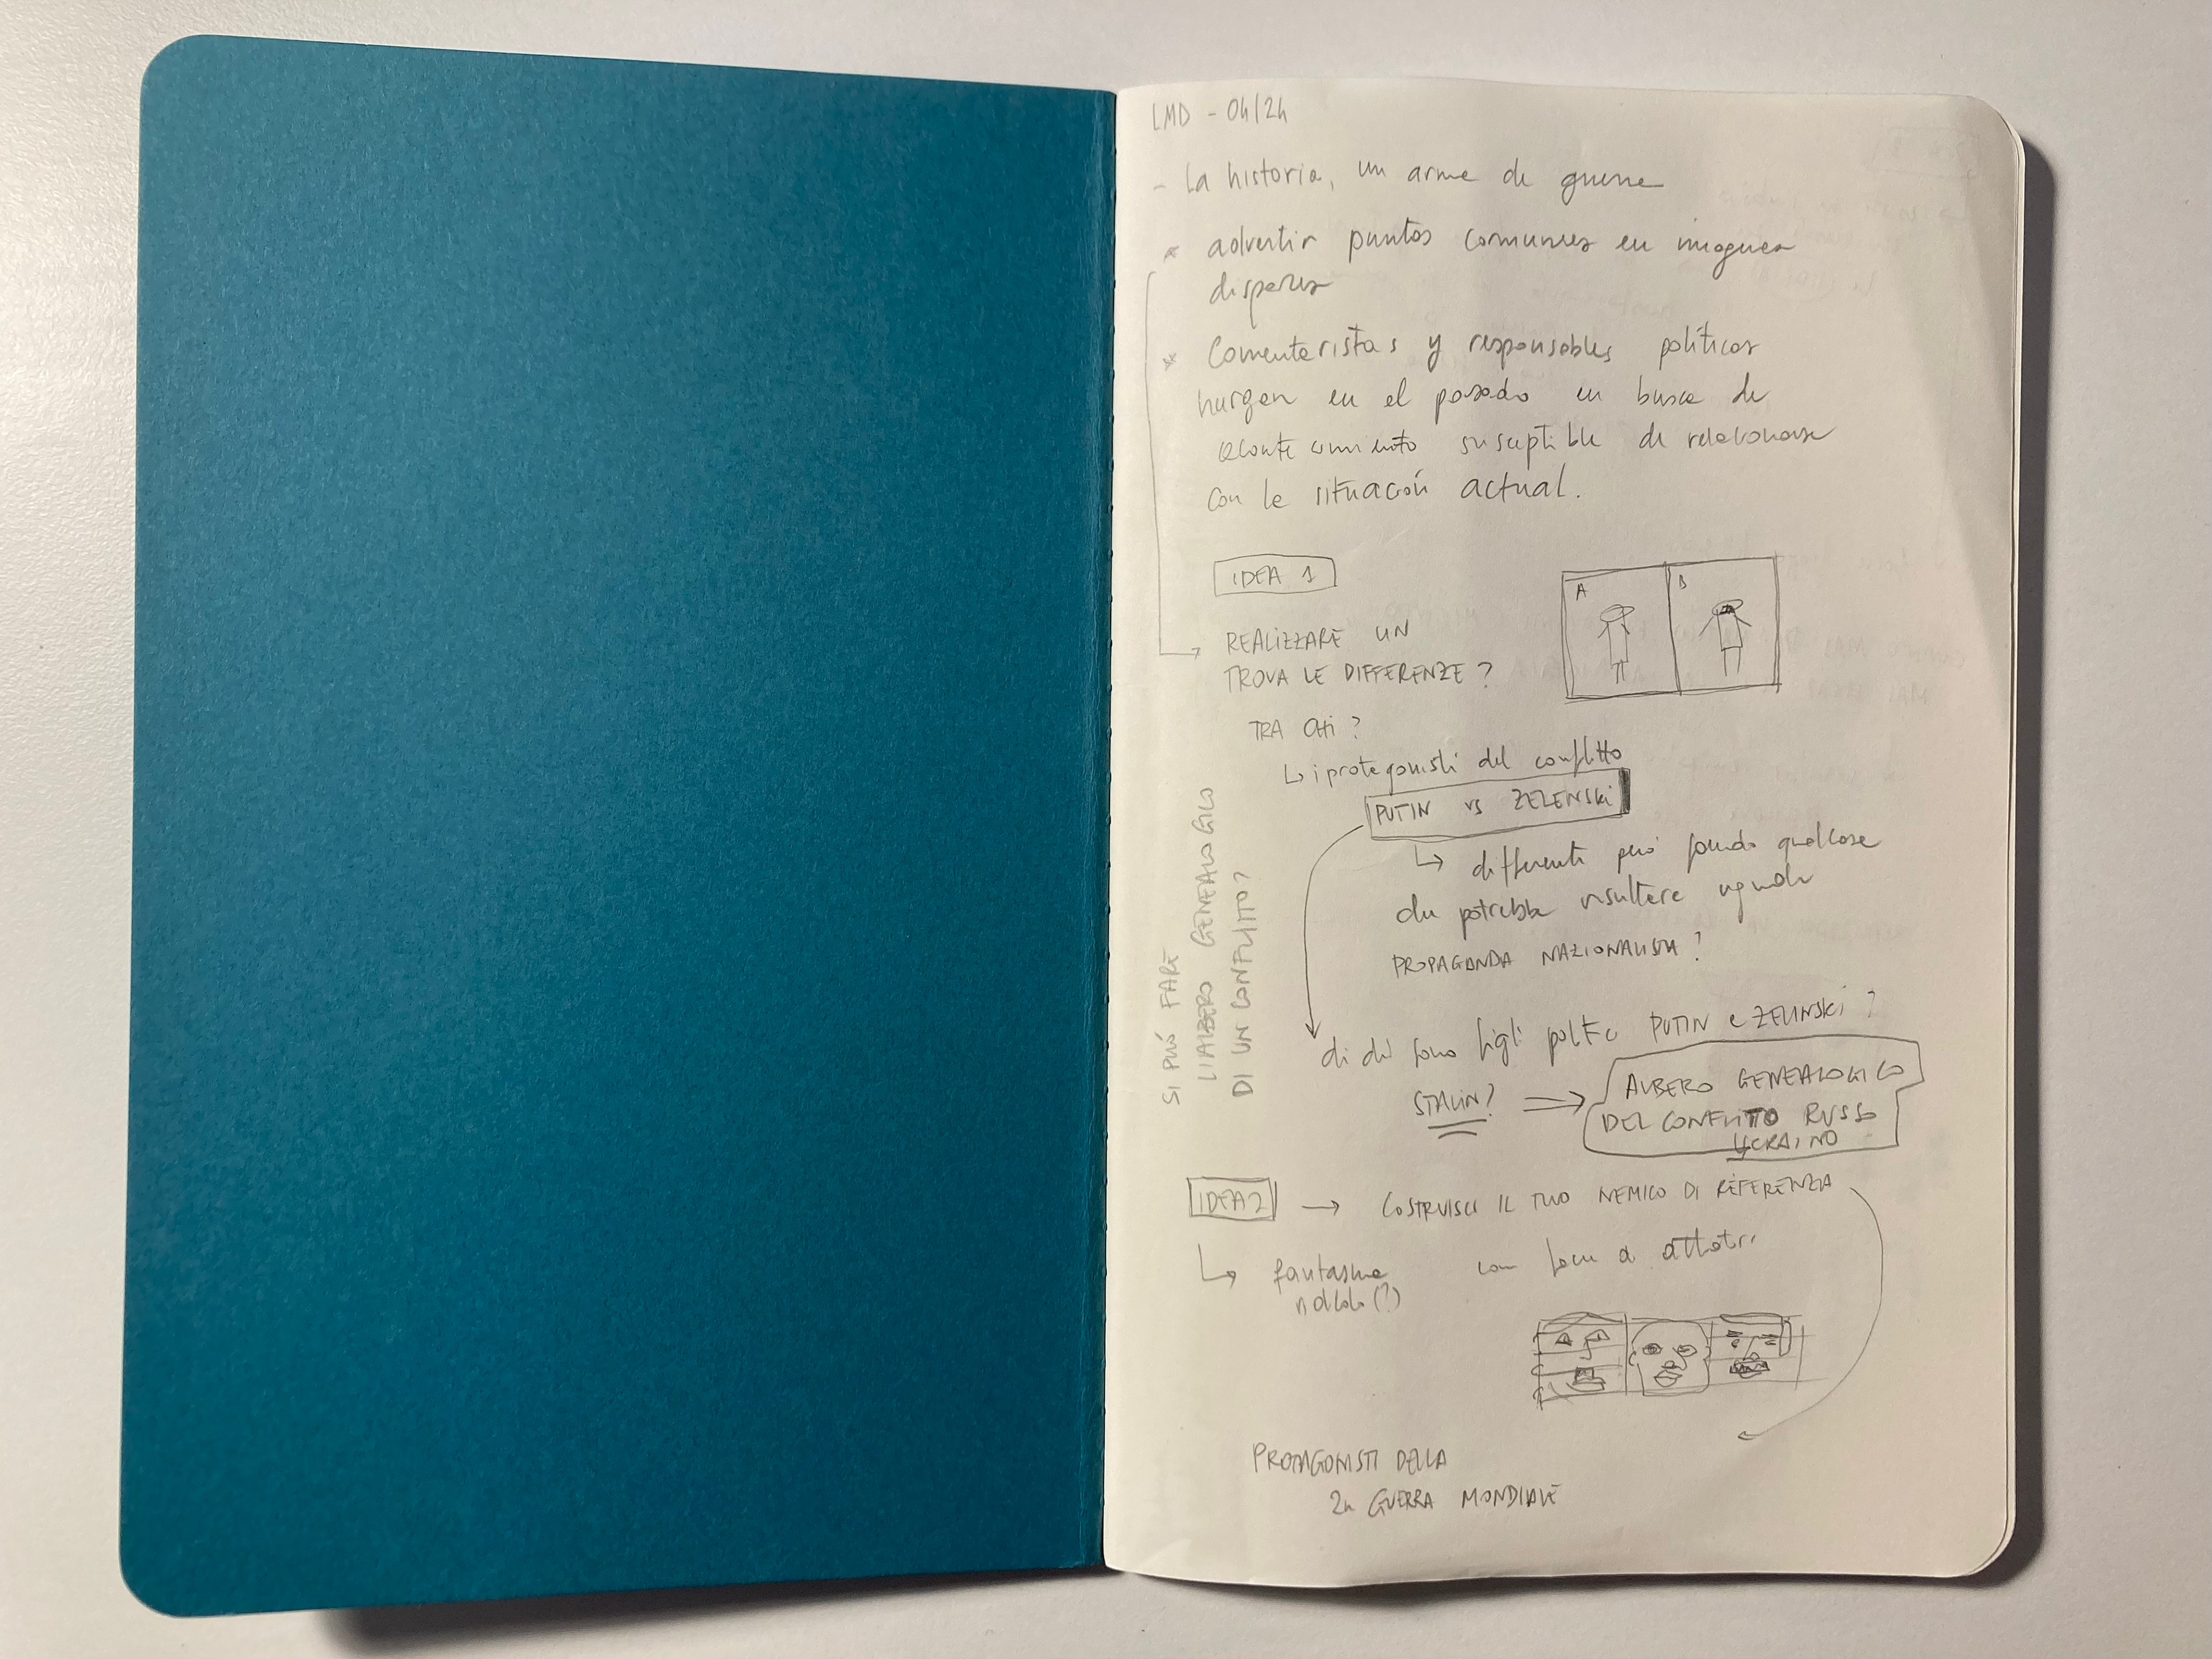 LMD - 04/24
- La historia, un arme de guerre
* advertir puntos comunes en imagenes
dispares
* Comentaristas y responsables políticos
hurgan en el pasado en busca de
acontecimiento susceptible de relacionarse
con la situación actual.
IDEA 1
A B
REALIZZARE UN
TROVA LE DIFFERENZE?
TRA CHI?
i protagonisti del conflitto
PUTIN vs ZELENSKI
differenti però facendo qualcosa
che potrebbe risultare uguale
PROPAGANDA NAZIONALISTA?
di chi sono figli politici PUTIN e ZELINSKI?
STALIN?
ALBERO GENEALOGICO
DEL CONFLITTO RUSSO
UCRAINO
SI PUÓ FARE
L'ALBERO GENEALOGICO
DI UN CONFLITTO?
IDEA 2 → COSTRUISCI IL TUO NEMICO DI REFERENZIA
fantasma
ridicolo (?)
con facce a
PROTAGONISTI DELLA
2a GUERRA MONDIALE